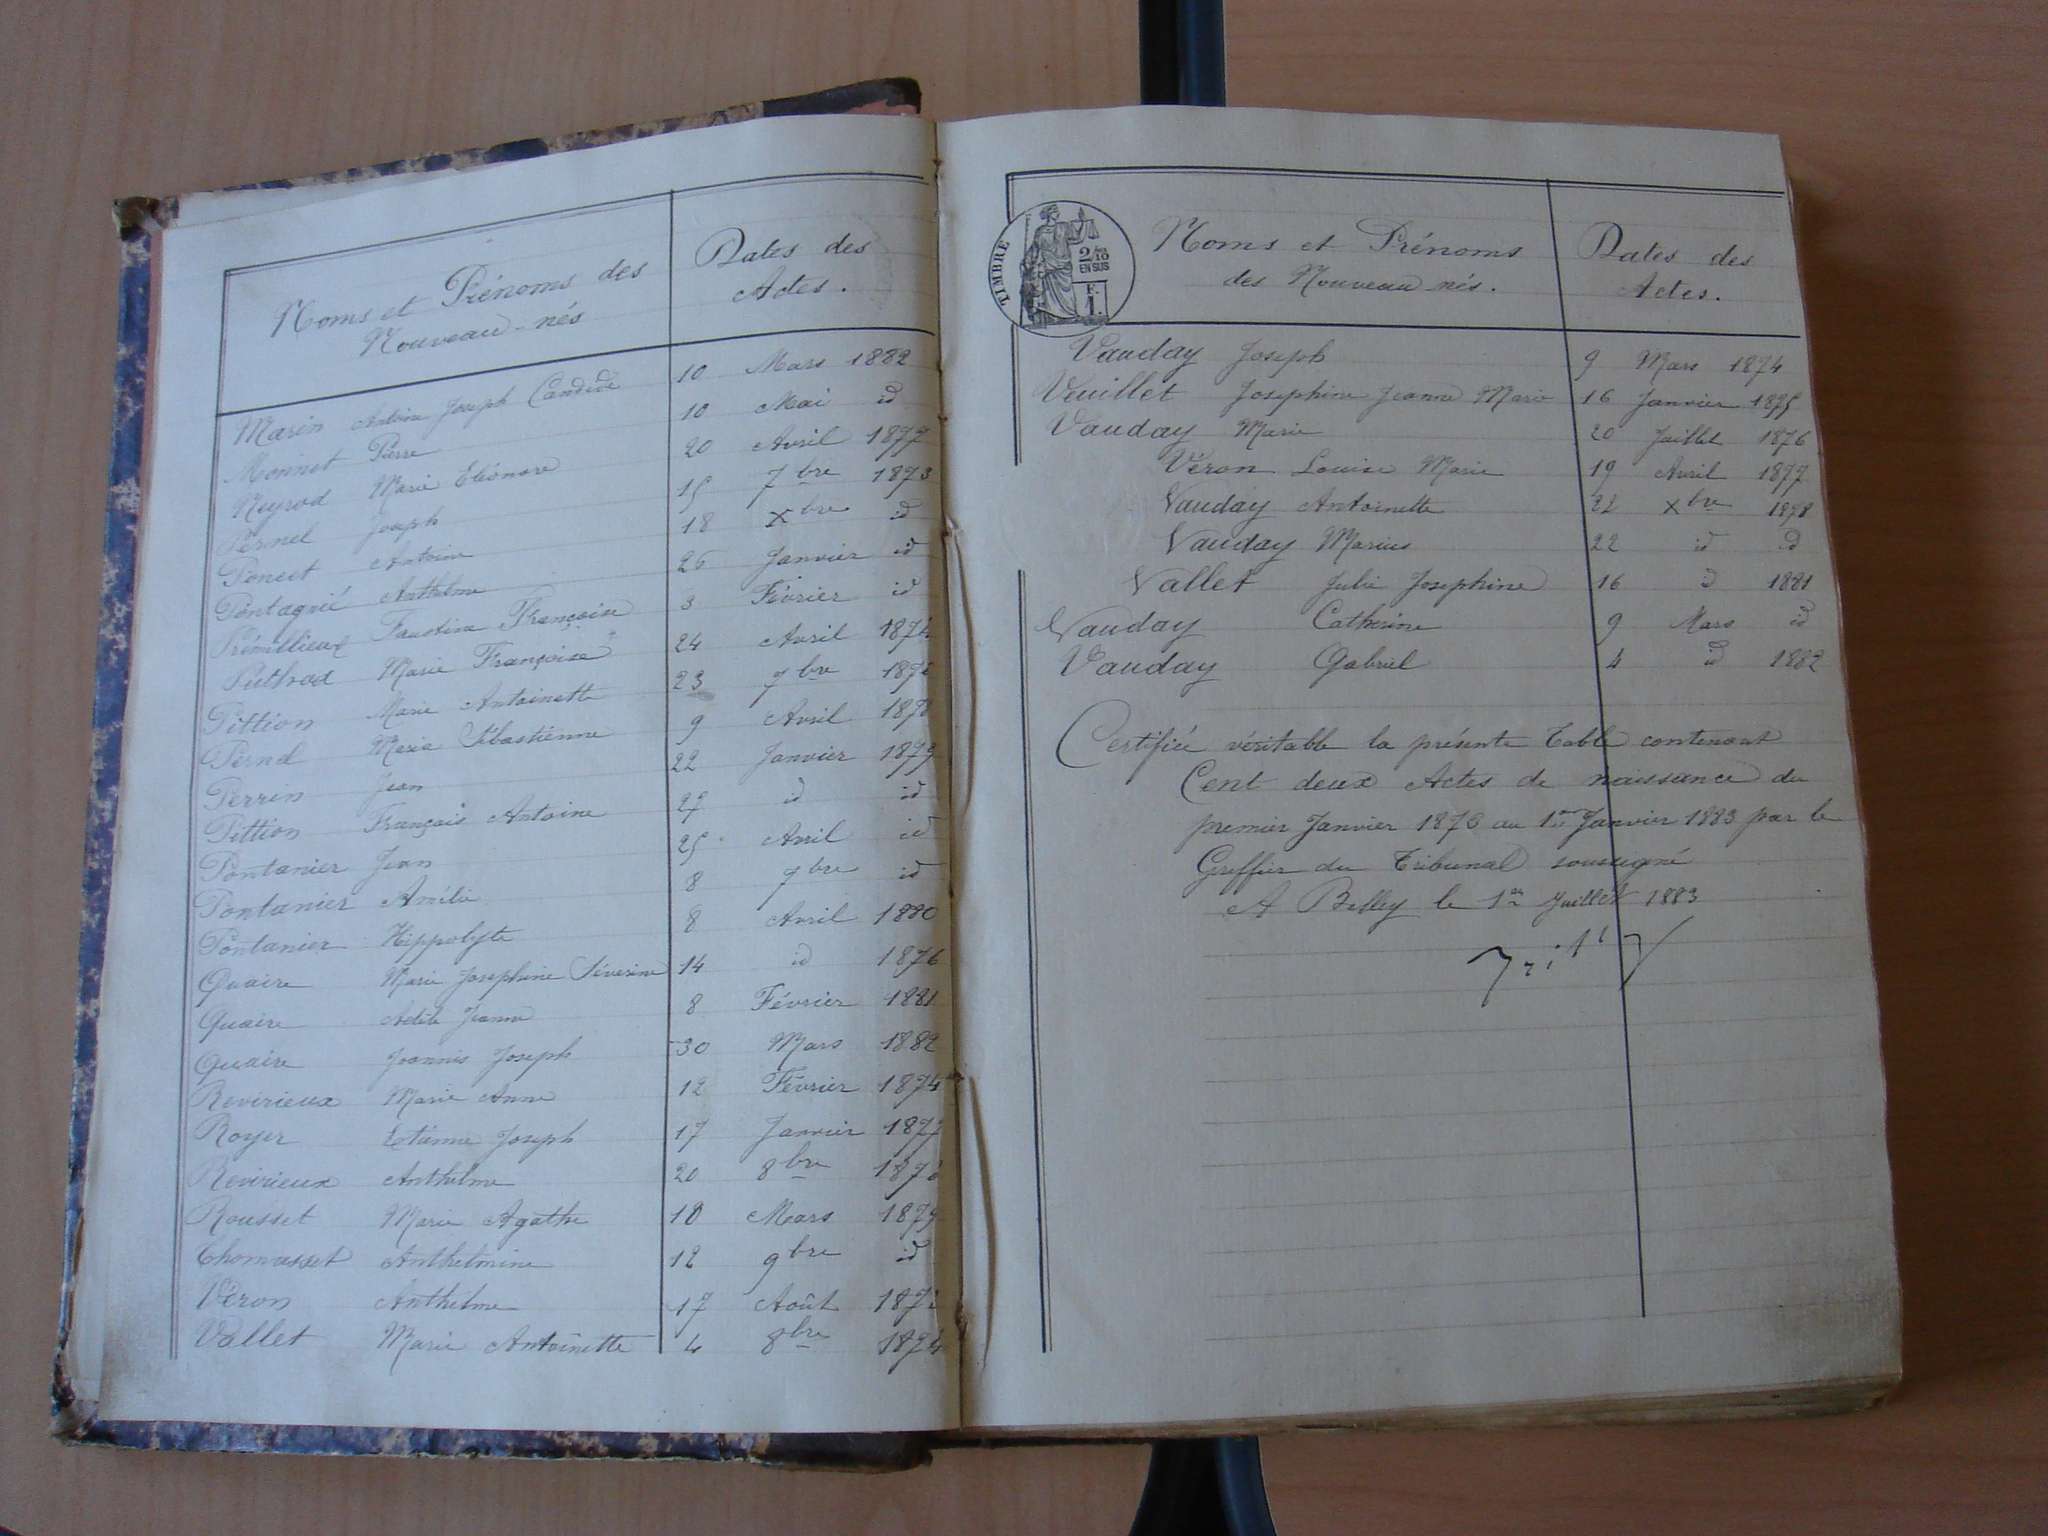 Noms et Prénoms des
Nouveau-nés
Dates des
Actes.
Marin Antoine Joseph Candide 10 Mars 1882
Monnet Pierre 10 Mai id
Neyrod Marie Eléonore 20 Avril 1877
Pernel Joseph 15 7bre 1873
Poncet Antoine 18 xbre id
Pontagnié Anthelme 26 Janvier id
Prémillieux Faustine Françoise 3 Février id
Puthod Marie Françoise 24 Avril 1874
Pittion Marie Antoinette 23 7bre
Pernel Marie Sébastienne 9 Avril 1878
Perrin Jean 22 Janvier 1879
Pittion François Antoine 27 id id
Pontanier Jean 25 Avril id
Pontanier Amélie 8 7bre id
Pontanier Hippolyte 8 Avril 1880
Quaire Marie Josephine Séverine 14 id 1876
Quaire Adèle Jeanne 8 Février 1881
Quaire Joannis Joseph 30 Mars 1882
Revirieux Marie Anne 12 Février 1874
Royer Etienne Joseph 17 Janvier 1877
Revirieux Anthelme 20 8bre
Rousset Marie Agathe 18 Mars 1879
Thomasset Anthelmine 12 9bre id
Véron Anthelme 17 Août
Vallet Marie Antoinette 4 8bre 1874
TIMBRE
2/10
EN SUS
F.
1.
Noms et Prénoms
des Nouveau nés.
Dates des
Actes.
Vauday Joseph 9 Mars 1874
Veuillet Josephine Jeanne Marie 16 Janvier 1875
Vauday Marie 20 Juillet 1876
Véron Louise Marie 19 Avril 1877
Vauday Antoinette 22 xbre 1878
Vauday Marius 22 id id
Vallet Julie Josephine 16 id 1881
Vauday Catherine 9 Mars id
Vauday Gabriel 4 id 1882
Certifiée véritable la présente Table contenant
Cent deux Actes de naissance du
premier Janvier 1873 au 1er Janvier 1883 par le
Greffier du Tribunal soussigné
A Belley le 1er Juillet 1883